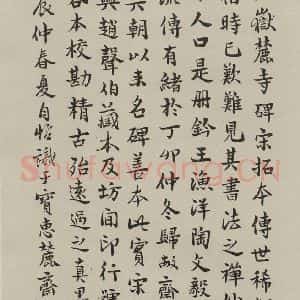 嶽麓寺碑宋拓本傳世稀
時已歎難見其書法之
人口是册鈐王漁洋陶文毅
流傳有緒於丁卯仲冬歸齋
朝以来名碑善本此實宋
興趙聲伯藏本及坊間印行
本校勘精古殆遠過之真
辰仲春夏自怡識于寶惠麓齋